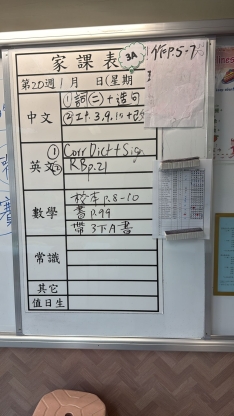 家課表
3A
作p.5-7
第20週 1月 日(星期
中文
①詞(二)+造句
②工作3,9,
英文
①Corr Dict+Sig
②RB p.21
數學
校本p.8-10
書p.99
帶3下A書
常識
其它
值日生